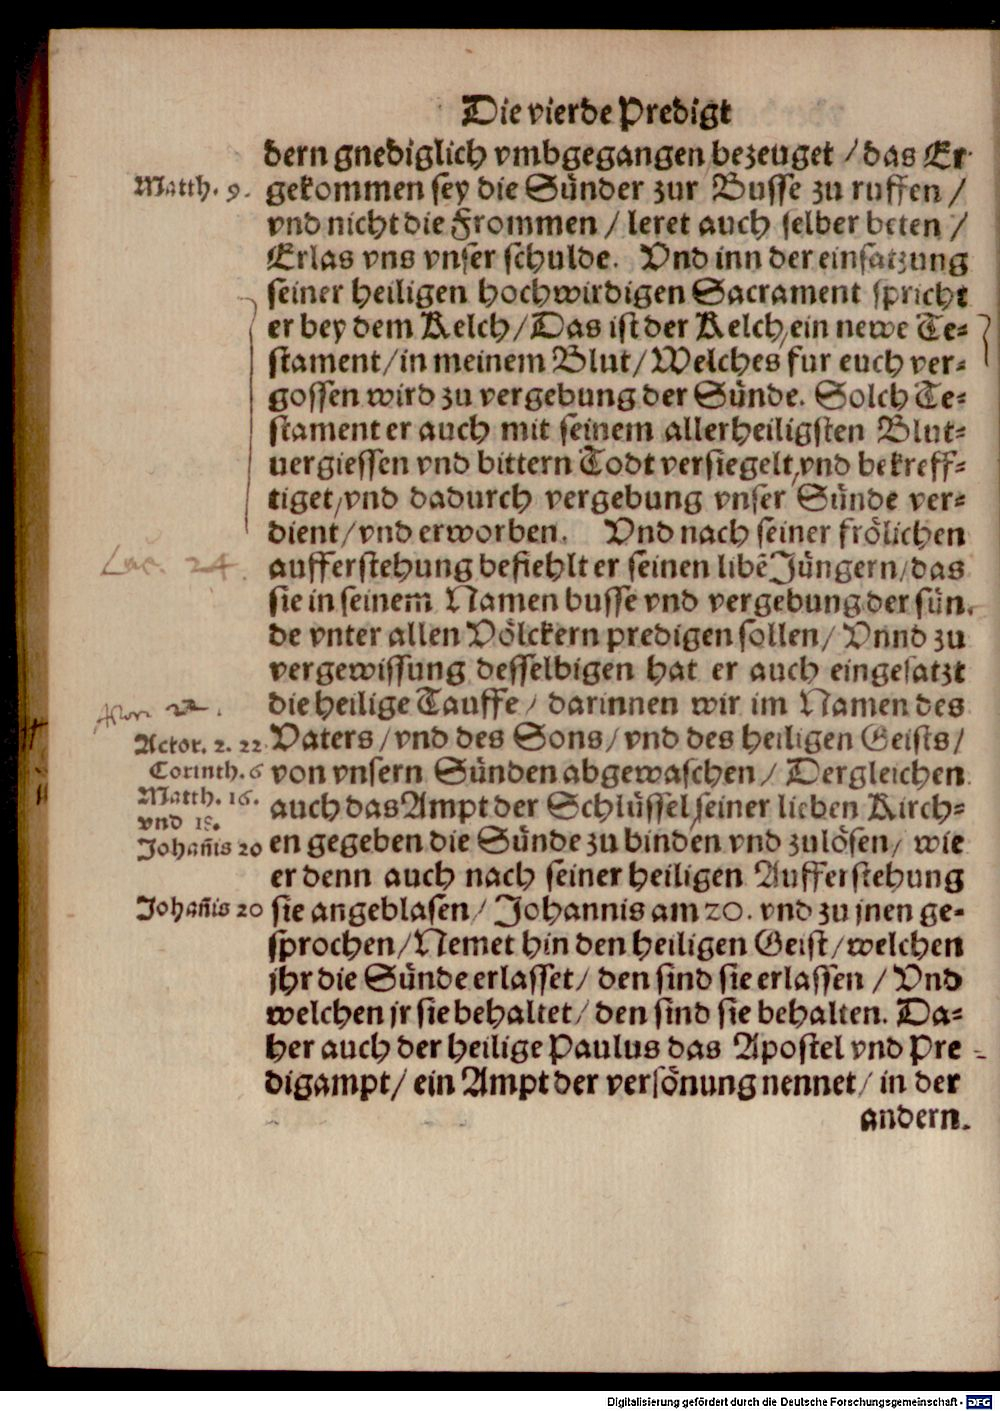 Die vierde Predigt
dern gnediglich vmbgegangen bezeuget / das Er
Matth. 9.
gekommen sey die Sünder zur Busse zu ruffen /
vnd nicht die Frommen / leret auch selber beten /
Erlas vns vnser schulde. Vnd inn der einsatzung
seiner heiligen hochwirdigen Sacrament spricht
er bey dem Kelch / Das ist der Kelch / ein newe Te=
stament / in meinem Blut / Welches fur euch ver=
gossen wird zu vergebung der Sünde. Solch Te=
stament er auch mit seinem allerheiligsten Blut=
uergiessen vnd bittern Todt versiegelt / vnd bekreff=
tiget / vnd dadurch vergebung vnser Sünde ver=
dient / vnd erworben. Vnd nach seiner frölichen
Luc. 24.
aufferstehung befiehlt er seinen libē Jüngern / das
sie in seinem Namen busse vnd vergebung der sün.
de vnter allen Völckern predigen sollen / Vnnd zu
vergewissung desselbigen hat er auch eingesatzt
die heilige Tauffe / darinnen wir im Namen des
22.
Actor. 2. 22
Vaters / vnd des Sons / vnd des heiligen Geists /
Corinth. 6
von vnsern Sünden abgewaschen / Dergleichen
Matth. 16.
vnd 18.
auch das Ampt der Schlüssel seiner lieben Kirch=
Johan̄is 20
en gegeben die Sünde zu binden vnd zulösen / wie
er denn auch nach seiner heiligen Aufferstehung
Johan̄is 20
sie angeblasen / Johannis am 20. vnd zu jnen ge=
sprochen / Nemet hin den heiligen Geist / welchen
jhr die Sünde erlasset / den sind sie erlassen / Vnd
welchen jr sie behaltet / den sind sie behalten. Da=
her auch der heilige Paulus das Apostel vnd Pre-
digampt / ein Ampt der versönung nennet / in der
andern.
Digitalisierung gefördert durch die Deutsche Forschungsgemeinschaft - DFG